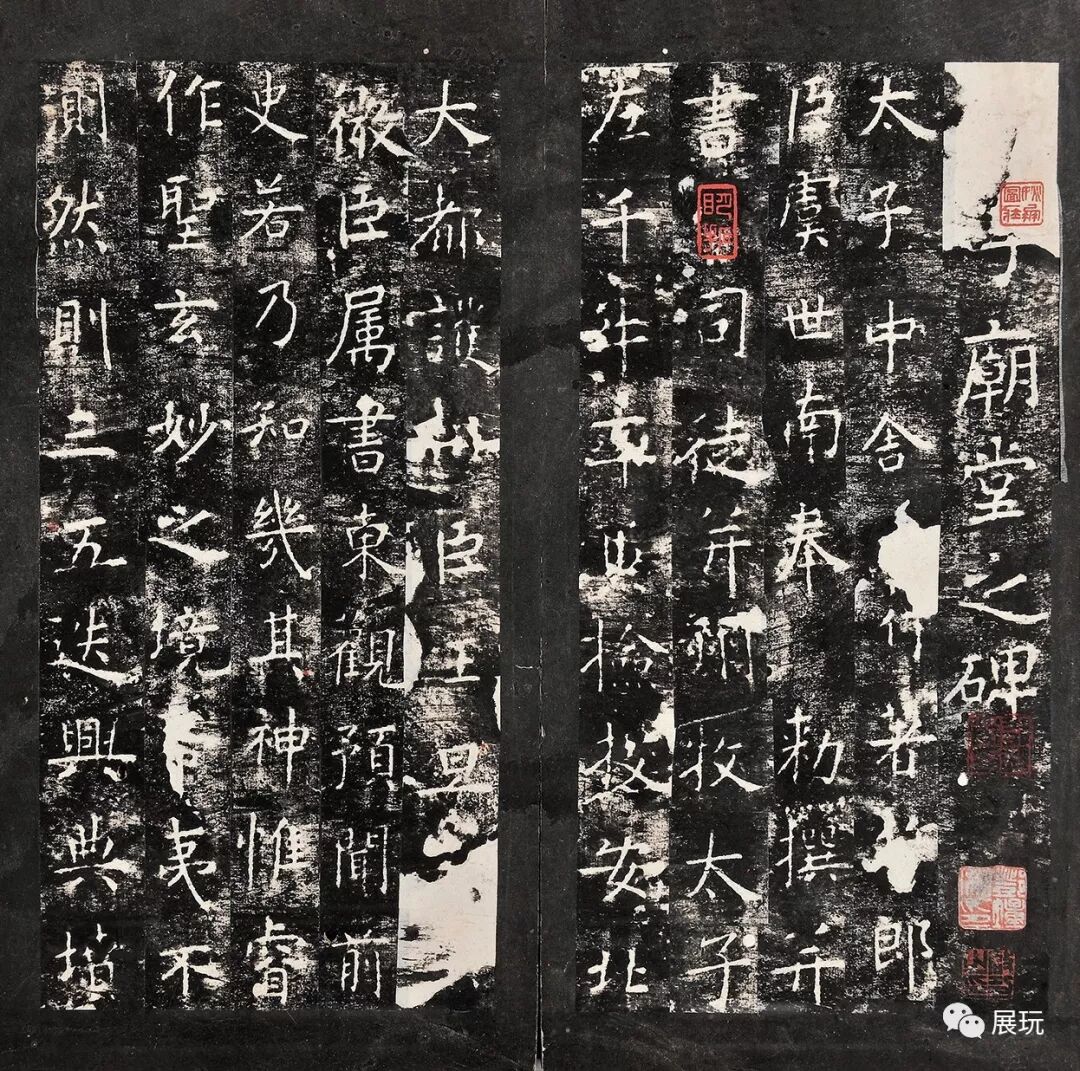 子廟堂之碑
太子中舍行著作郎
臣虞世南奉勅撰并
書司徒并州牧太子
左千牛率兼檢校安北
大都護王旦
微臣属書東觀預聞前
史若乃知幾其神惟睿
作聖玄妙之境希夷不
測然則三五迭興典墳
展玩